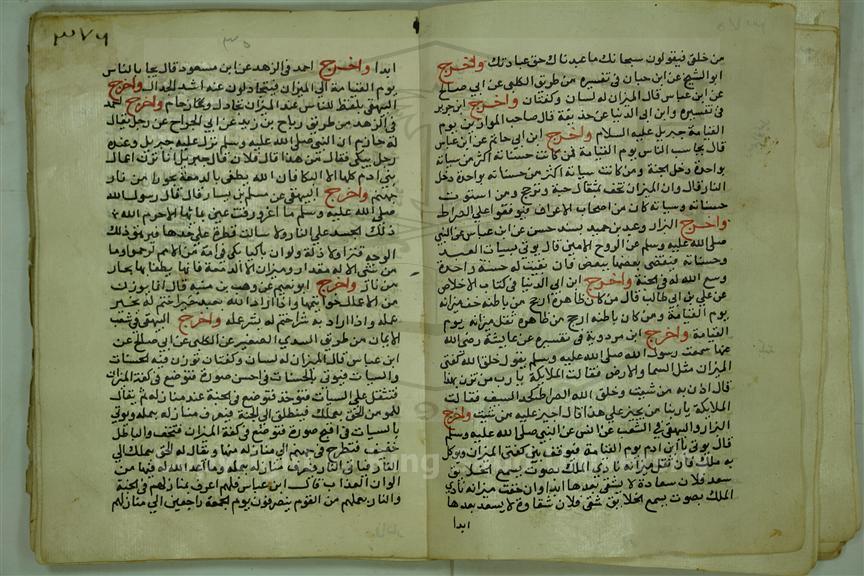 من خلق فيقولون سبحانك ما عبدناك حق عبادتك واخرج
ابو الشيخ عن ابن حيان في تفسيره من طريق الكلبي عن ابي صالح
عن ابن عباس قال الميزان له لسان وكفتان واخرج ابن جرير
في تفسيره وابن ابي الدنيا عن حذيفة قال صاحب الموازين يوم
القيامة جبريل عليه السلام واخرج ابن ابي حاتم عن ابن عباس
قال يحاسب الناس يوم القيامة فمن كانت حسناته اكثر من سياته
بواحدة دخل الجنة ومن كانت سياته اكثر من حسناته بواحدة دخل
النار قال وان الميزان يخف بمثقال حبة وترجح ومن استوت
حسناته وسياته كان من اصحاب الاعراف فيوقفوا على الصراط
واخرج البزار وعبد بن حميد بسند حسن عن ابن عباس عن النبي
صلى الله عليه وسلم عن الروح الامين قال يوتى بسيات العبد
وحسناته فيقضى بعضها ببعض فان بقيت له حسنة واحدة
وسع الله له في الجنة واخرج ابن ابي الدنيا في كتاب الاخلاص
عن علي بن ابي طالب قال من كان ظاهره ارجح من باطنه خف ميزانه
يوم القيامة ومن كان باطنه ارجح من ظاهره ثقل ميزانه يوم
القيامة واخرج ابن مردوية في تفسيره عن عايشة رضي الله
عنها سمعت رسول الله صلى الله عليه وسلم يقول خلق الله كفتي
الميزان مثل السما والارض فقالت الملايكة يا رب من تزن بهذا
قال ازن به من شيت وخلق الله الصراط كحد السيف فقالت
الملايكة يا ربنا من يجيز على هذا قال اجيز عليه من شيت واخرج
البزار والبيهقي في الشعب عن انس عن النبي صلى الله عليه وسلم
قال يوتى با ابن ادم يوم القيامة فيوقف بين كفتي الميزان ويوكل
به ملك فان ثقل ميزانه نادى الملك بصوت يسمع الخلايق
سعد فلان سعادة لا يشقى بعدها ابدا وان خفت ميزانه نادى
الملك بصوت يسمع الخلايق شقي فلان شقاوة لا يسعد بعدها
ابدا
٣٧٦
ابدا واخرج احمد في الزهد عن ابن مسعود قال يجا بالناس
يوم القيامة الى الميزان فيتجادلون عنده اشد الجدال واخرج
البيهقي بلفظ للناس عند الميزان تجادل وزحام واخرج احمد
في الزهد من طريق رباح بن زيد عن ابي الجراح عن رجل يقال
له حازم ان النبي صلى الله عليه وسلم نزل عليه جبريل وعنده
رجل يبكي فقال من هذا قال فلان قال جبريل انا نزن اعمال
بني ادم كلها الا البكا فان الله يطفي بالدمعة بحورا من نار
جهنم واخرج البيهقي عن مسلم بن يسار قال قال رسول الله
صلى الله عليه وسلم ما اغرورقت عين بمائها الا حرم الله
ذلك الجسد على النار ولا سالت قطرة على خدها فيرهق ذلك
الوجه قتر ولا ذلة ولو ان باكيا بكى في امة من الامم لرحموا وما
من شي الا له مقدار وميزان الا الدمعة فانها يطفا بها بحار
من نار واخرج ابو نعيم عن وهب بن منبه قال انما يوزن
من الاعمال خواتيمها واذا اراد الله بعبد خيرا ختم له بخير
عمله واذا اراد به شرا ختم له بشر عمله واخرج البيهقي في شعب
الايمان من طريق السدي الصغير عن الكلبي عن ابي صالح عن
ابن عباس قال الميزان له لسان وكفتان توزن فيه الحسنات
والسيات فيوتى بالحسنات في احسن صورة فتوضع في كفة الميزان
فتثقل على السيات فتوخذ فتوضع في الجنة عند منازله ثم يقال
للمومن الحق بعملك فينطلق الى الجنة فيعرف منازله بعمله ويوتى
بالسيات في اقبح صورة فتوضع في كفة الميزان فتخف والباطل
خفيف فتطرح في جهنم الى منازله منها ويقال له الحق بعملك الى
النار فياتي النار فيعرف منازله بعمله وما اعد الله له فيها من
الوان العذاب قال ابن عباس فلهم اعرف بمنازلهم في الجنة
والنار بعملهم من القوم ينصرفون يوم الجمعة راجعين الى منازلهم